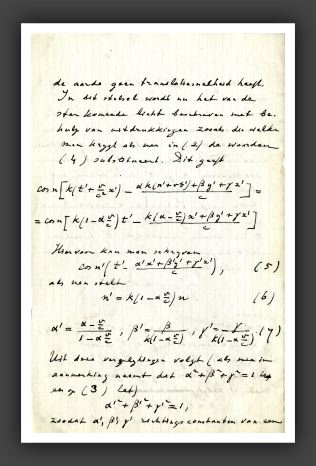 de aarde geen translatiesnelheid heeft.
In dit stelsel wordt nu het van de
ster komende licht beschreven met be-
hulp van uitdrukkingen zooals die welke
men krijgt als men in (2) de waarden
(4) substitueert. Dit geeft
cos n[k(t'+v/c² x') - (αk(x'+vt')+βy'+γz')/c] =
= cos n[k(1-α v/c)t' - (k(α-v/c)x'+βy'+γz')/c]
Hiervoor kan men schrijven
cos n'(t' - (α'x'+β'y'+γ'z')/c), (5)
als men stelt
n' = k(1-α v/c)n (6)
α' = (α-v/c)/(1-α v/c), β' = β/(k(1-α v/c)), γ' = γ/(k(1-α v/c)). (7)
Uit deze vergelijkingen volgt (als men in
aanmerking neemt dat α²+β²+γ²=1 is
en op (3) let)
α'²+β'²+γ'²=1,
zoodat α', β', γ' richtingsconstanten van een